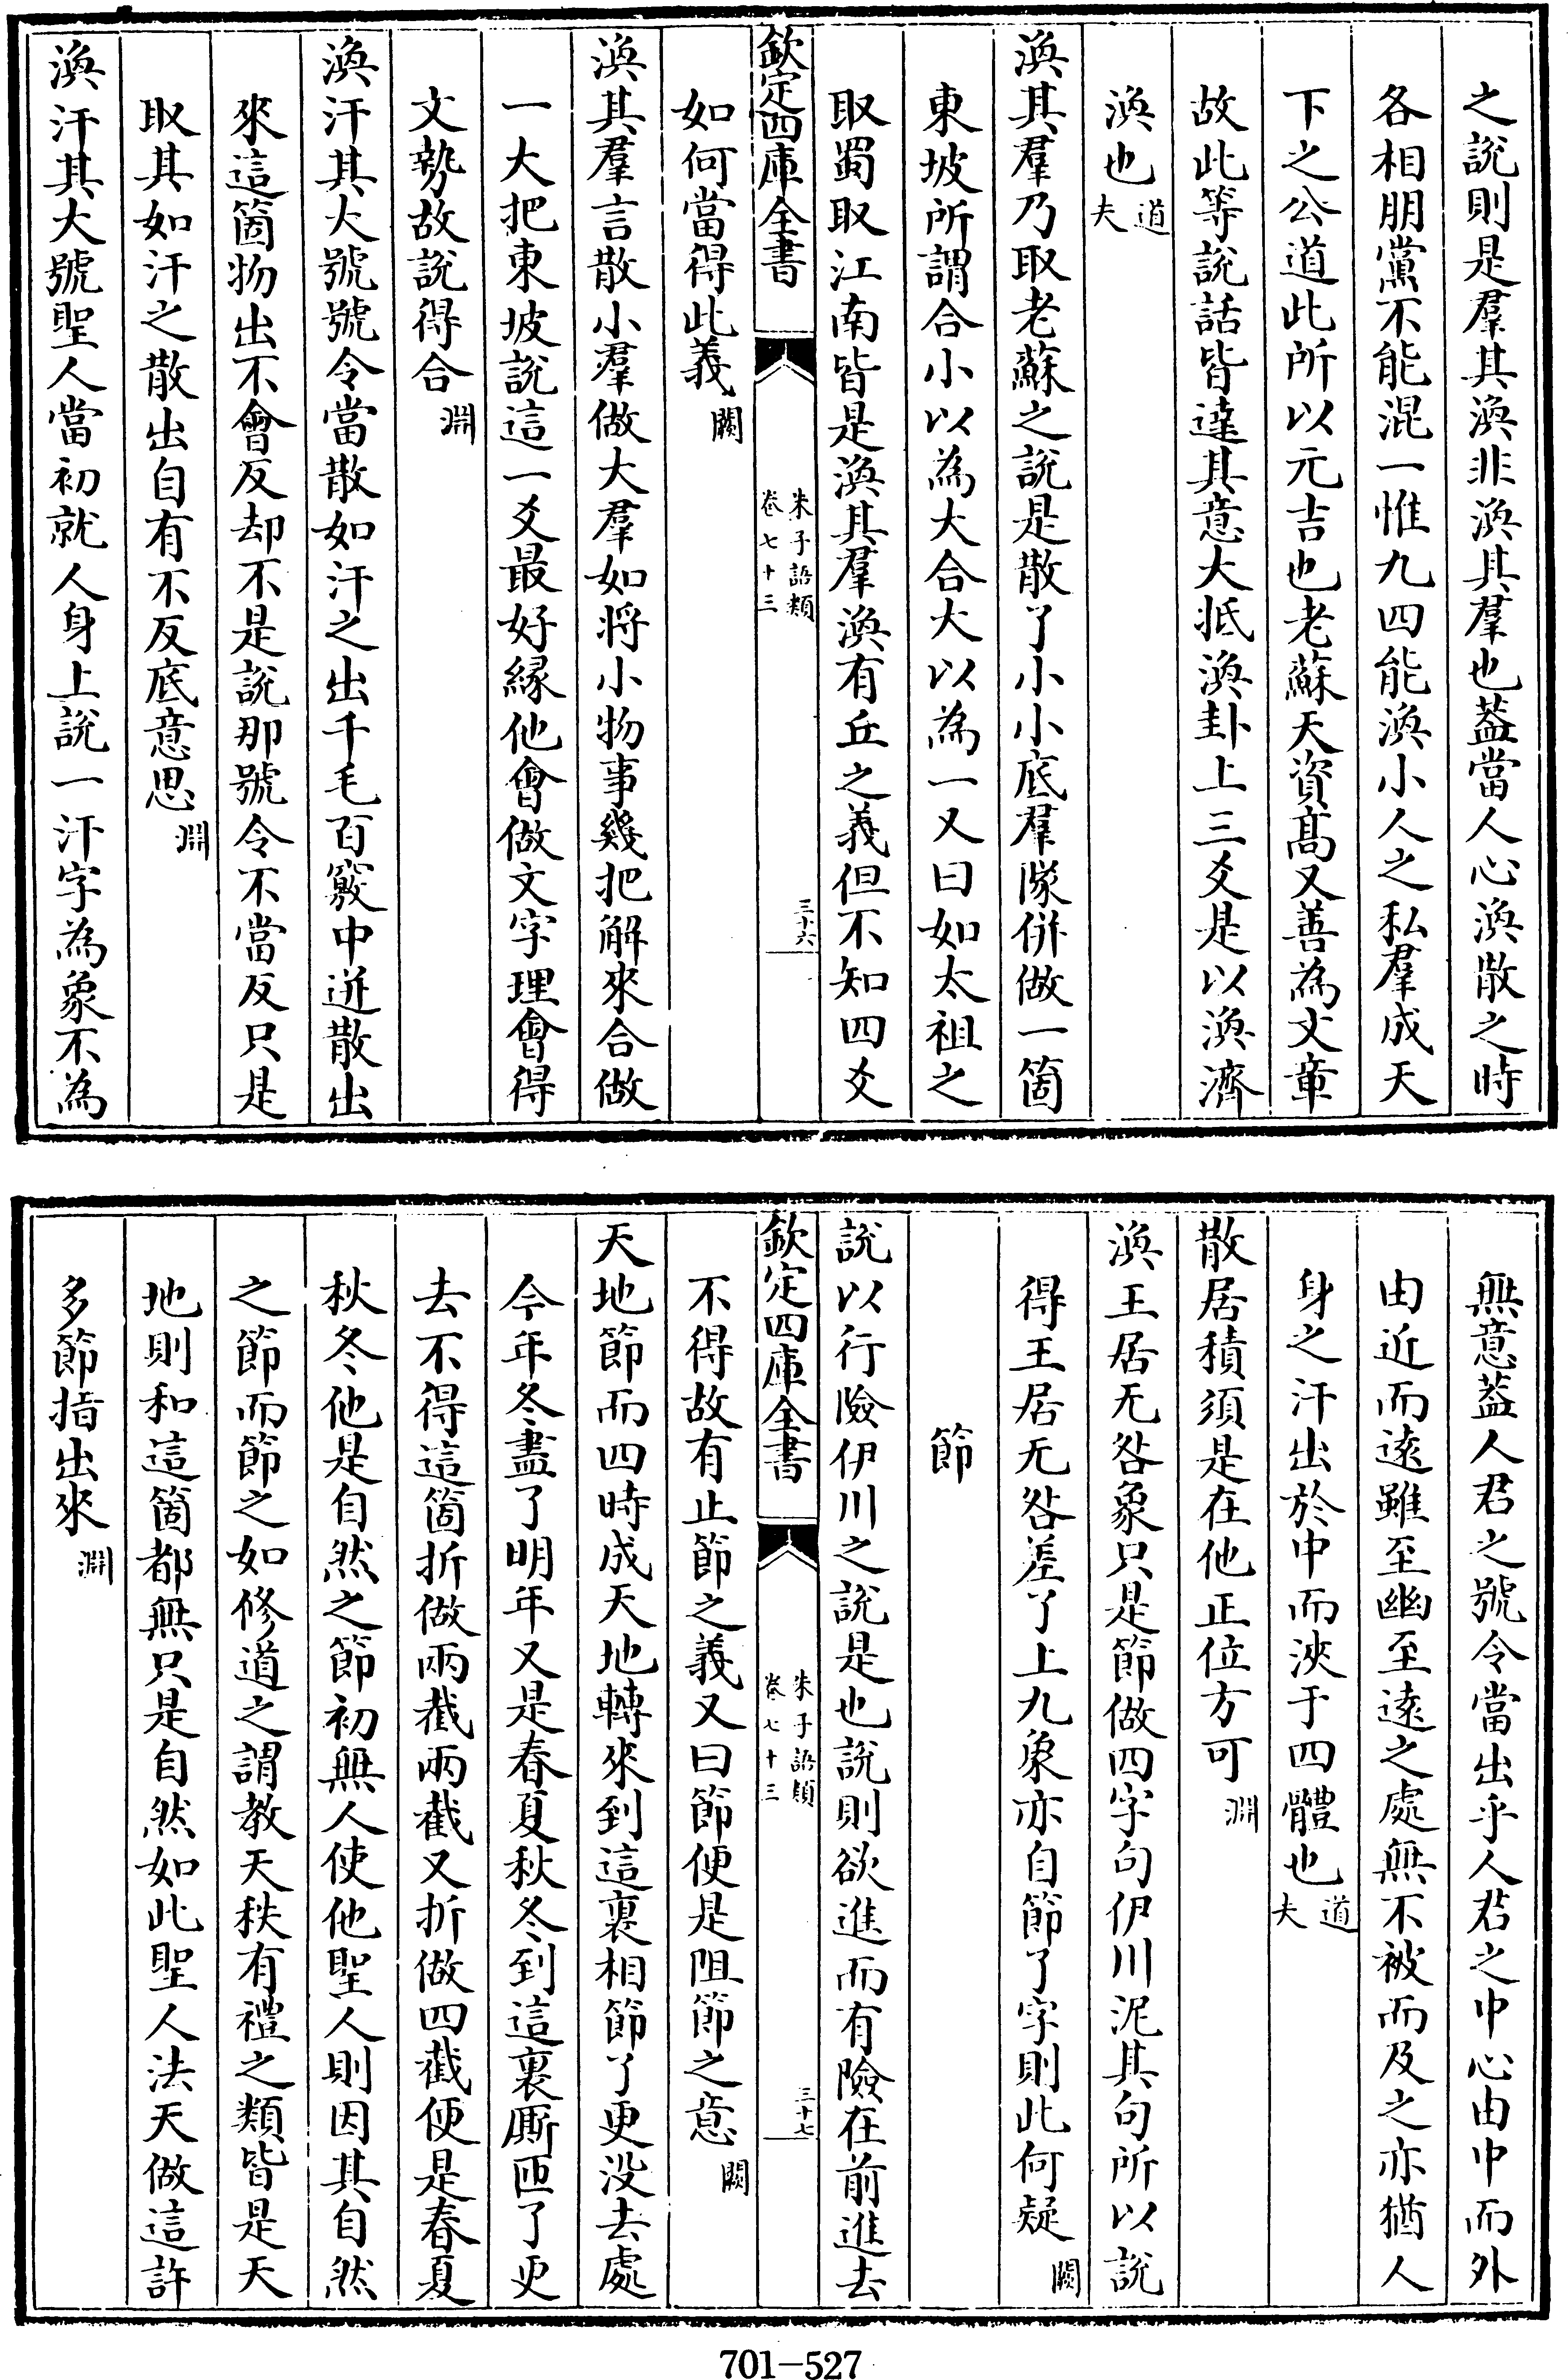 之說則是羣其渙非渙其羣也葢當人心渙散之時
各相朋黨不能混一惟九四能渙小人之私羣成天
下之公道此所以元吉也老蘇天資髙又善為文章
故此等說話皆達其意大抵渙卦上三爻是以渙濟
渙也道夫
渙其羣乃取老蘇之說是散了小小底羣隊併做一箇
東坡所謂合小以為大合大以為一又曰如太祖之
取蜀取江南皆是渙其羣渙有丘之義但不知四爻
欽定四庫全書
朱子語類
卷七十三
三十六
如何當得此義闕
渙其羣言散小羣做大羣如將小物事幾把解來合做
一大把東坡說這一爻最好緣他會做文字理會得
文勢故說得合淵
渙汗其大號號令當散如汗之出千毛百竅中迸散出
來這箇物出不會反却不是說那號令不當反只是
取其如汗之散出自有不反底意思淵
渙汗其大號聖人當初就人身上說一汗字為象不為
無意葢人君之號令當出乎人君之中心由中而外
由近而遠雖至幽至遠之處無不被而及之亦猶人
身之汗出於中而浹于四體也道夫
散居積須是在他正位方可淵
渙王居无咎象只是節做四字句伊川泥其句所以說
得王居无咎差了上九象亦自節了字則此何疑闕
節
說以行險伊川之說是也說則欲進而有險在前進去
欽定四庫全書
朱子語類
卷七十三
三十七
不得故有止節之義又曰節便是阻節之意闕
天地節而四時成天地轉來到這裏相節了更没去處
今年冬盡了明年又是春夏秋冬到這裏厮匝了更
去不得這箇折做兩截兩截又折做四截便是春夏
秋冬他是自然之節初無人使他聖人則因其自然
之節而節之如修道之謂教天秩有禮之類皆是天
地則和這箇都無只是自然如此聖人法天做這許
多節指出來淵
701-527